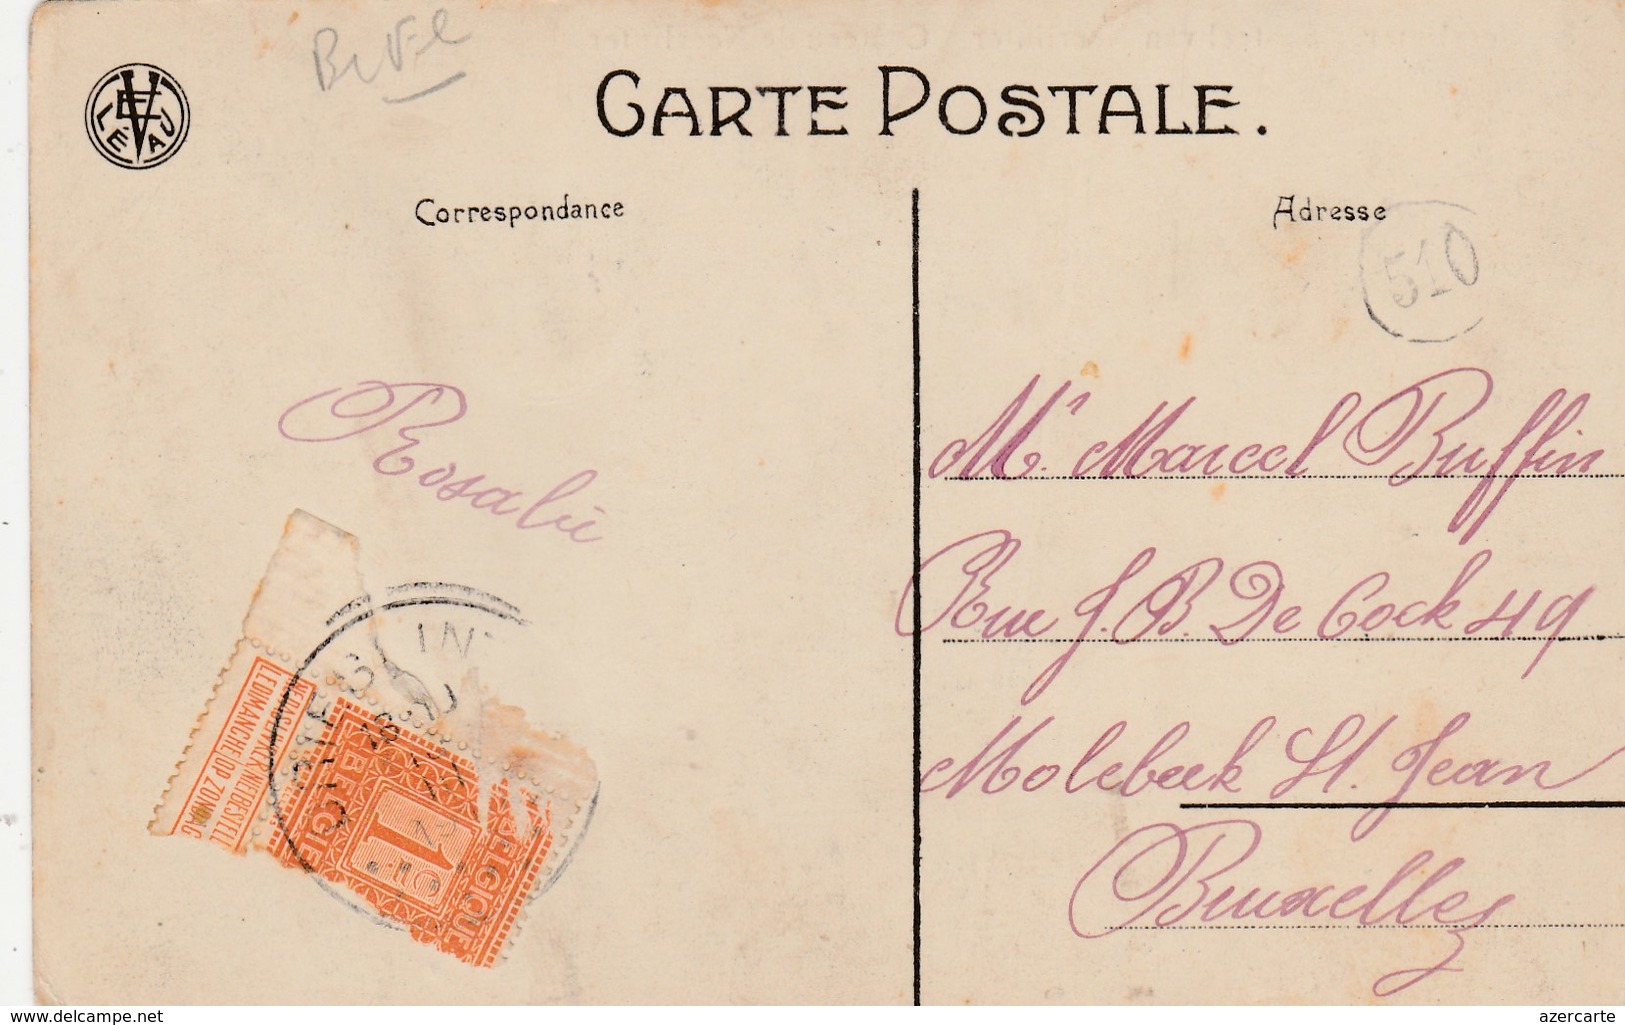 CARTE POSTALE.
Correspondance
Adresse
510
Rosalie
Mr. Marcel Buffin
Rue J. B. De Cock 49
Molebeek St. Jean
Bruxelles
NE PAS LIVRER
LE DIMANCHE
NIET BESTELLEN
OP ZONDAG
BELGIE
1c
BELGIQUE
www.delcampe.net
azercarte